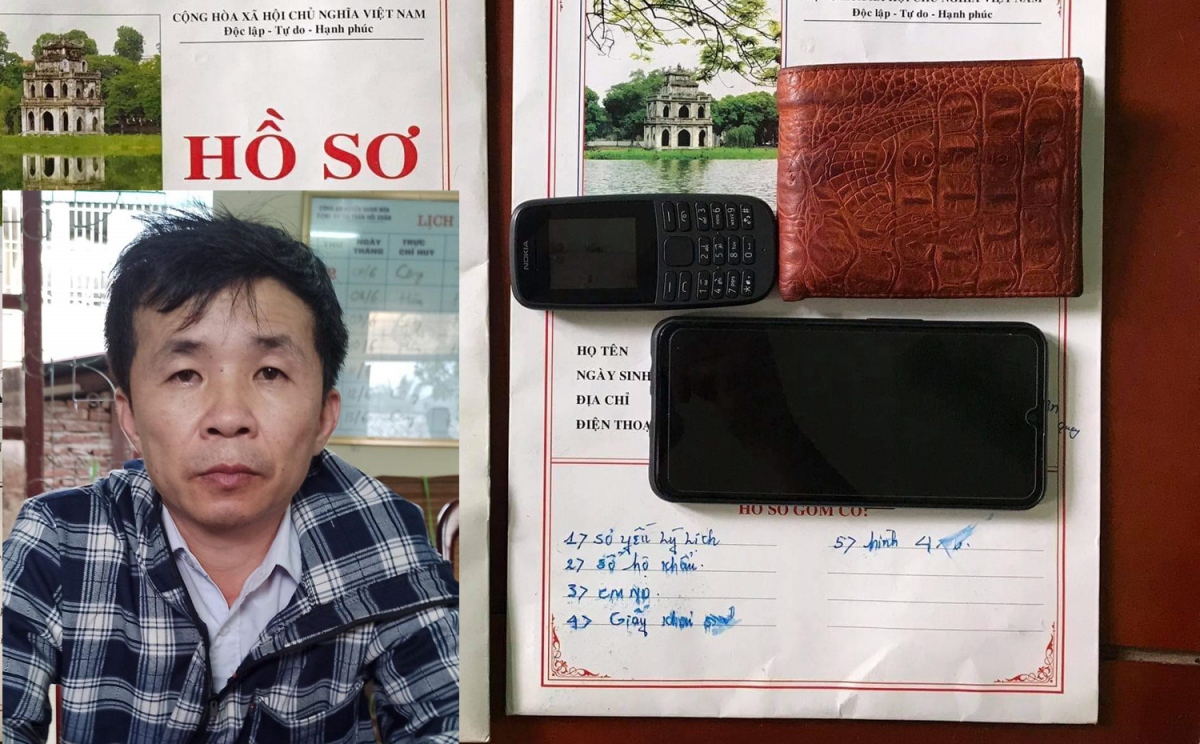 CỘNG HÒA XÃ HỘI CHỦ NGHĨA VIỆT NAM
Độc lập - Tự do - Hạnh phúc
HỒ SƠ
LỊCH
NGÀY THÁNG
TRỰC CHỈ HUY
CHỦ NGHĨA VIỆT NAM
Độc lập - Tự do - Hạnh phúc
NOKIA
HỌ TÊN
NGÀY SINH
ĐỊA CHỈ
ĐIỆN THOẠ
HỒ SƠ GỒM CÓ:
1> Sơ yếu lý lịch
2> sổ hộ khẩu.
3> CMND.
4> Giấy khai
5> hình 4x6.